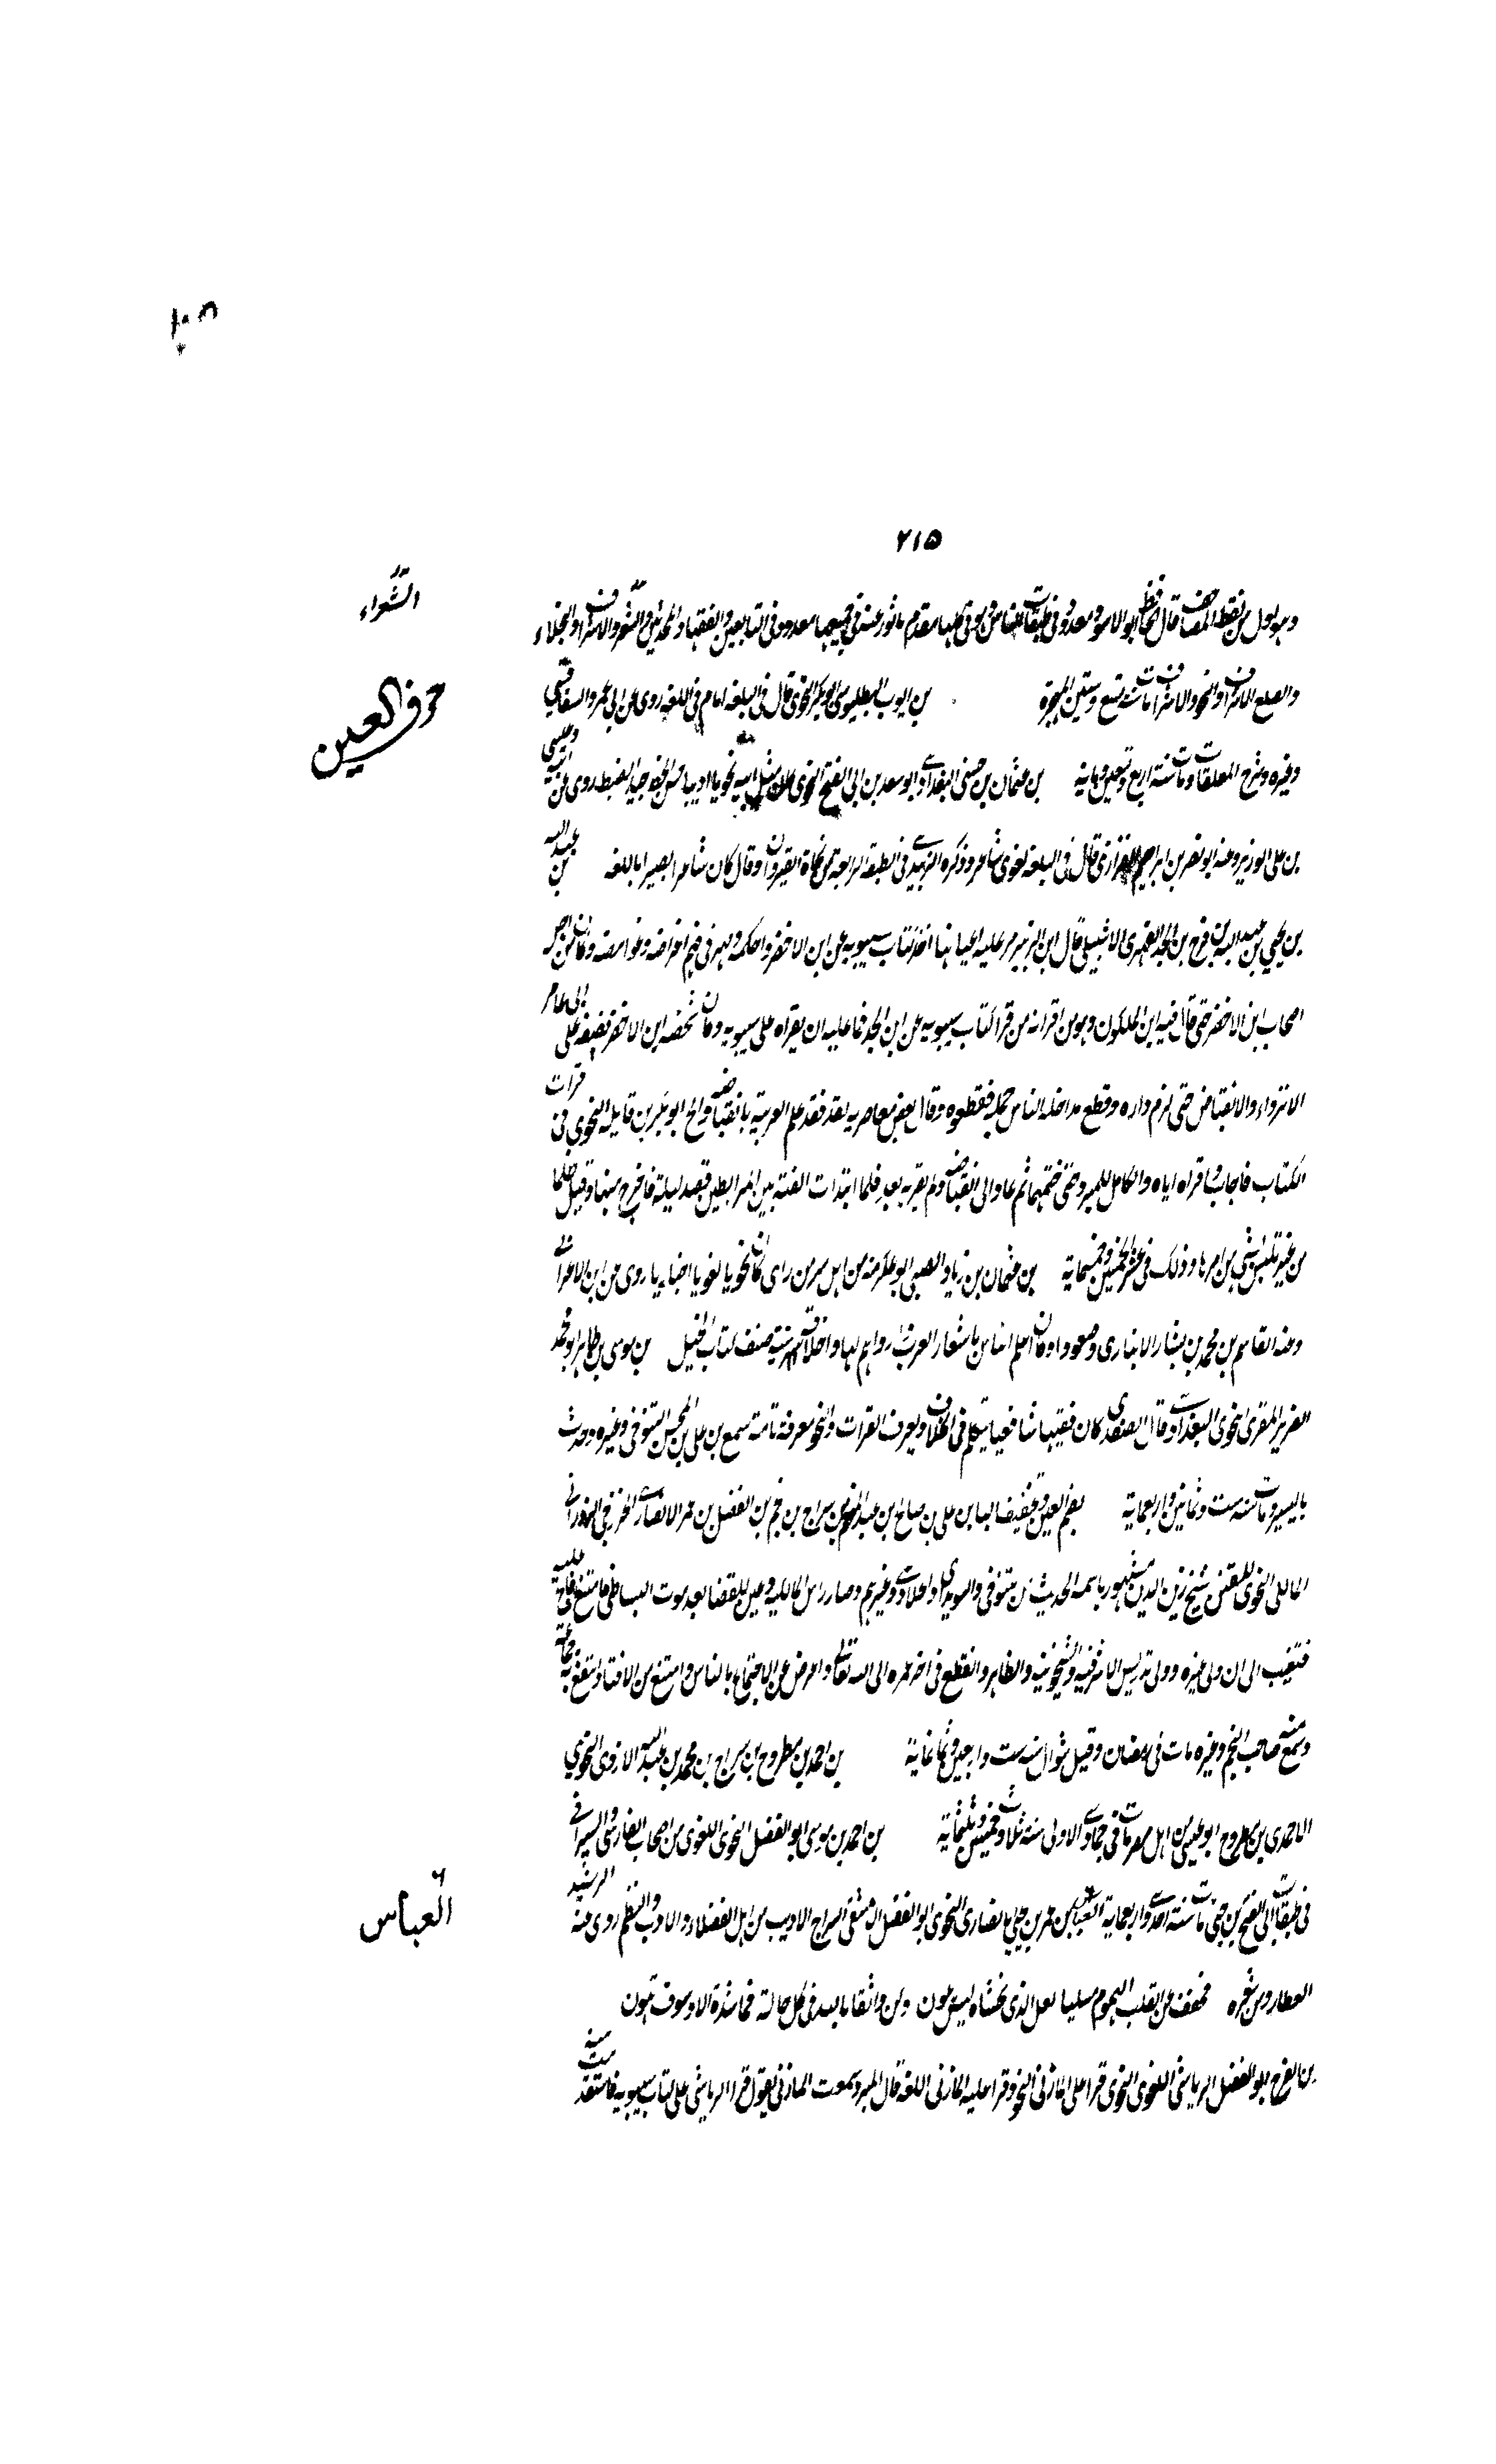 ٢١٥
الشعراء
وهو اول من نقط المصاحف قال الجاحظ ابو الاسود معدود فى طبقات الناس وهو فى كلها مقدم ماثور عنه فى جميعها معدود فى التابعين والفقهاء والمحدثين والشعراء والاشراف والبخلاء
والصلع الاشراف والنحو والاشراف مات سنة تسع وستين للهجرة بن ايوب البطليوسى ابو بكر النحوى قال فى البلغه امام فى اللغه روى عن ابى عمرو السفاقسى
حرف العين
وغيره وشرح المعلقات ومات سنة اربع وتسعين وماية بن عثمان بن جنى البغدادى ابو سعد بن ابى الفتح النحوى كان مثل ابيه نحويا اديبا حسن الخط جيد الضبط روى عن ابيه وعيسى
بن على الوزير وعنه ابو نصر بن القزازى قال فى البلغه لغوى شاعر وذكره الزبيدى فى الطبقه الرابعة من نحاة القيروان وقال كان شاعرا بصيرا باللغه بن عبد الله
بن يحيى بن عبد الله بن فرج بن الجد الفهرى الاشبيلى قال ابن الزبير من علية اعيانها اخذ كتاب سيبويه عن ابن الاخضر واحكمه ومهر فى فهم اغراضه وغوامضه وكان من اجل
اصحاب ابن الاخضر حتى قال فيه ابن الملكون وهو من اقرانه من قرا كتاب سيبويه على ابن الجد فما عليه ان يقراه على سيبويه وكان تحضه ابن الاخضر ابى عامر
الانزواء والانقباض حتى لزم داره وقطع مداخلة الناس جملة فقطعوه وقال بعض معاصريه لقد فقد علم العربية بانقباضه والح ابو بكر بن قابيل النحوى فى قرات
الكتاب فاجاب واقراه اياه والكامل للمبرد حتى ختمهما ثم عاد الى انقباضه ولم يقريه بعد فلما ابتدات الفتنة بين المرابطين قصد لبلة فاخرج منها وقتل ظلما
من غير تلبس بشى من امرها وذلك فى عشر الخمسين وخمسماية بن عثمان بن زياد الضبى ابو عكرمة من اهل سر من راى كان نحويا لغويا اخباريا روى عن ابن الاعرابى
وعنه القاسم بن محمد بن بشار الانبارى وكان اعلم الناس باشعار العرب رواهم لها صنف كتاب الخيل بن موسى بن طاهر ابو محمد
الضرير المقرى النحوى البغدادى قال الصفدى كان فقيها شافعيا يتكلم فى الخلاف ويعرف القرات والنحو معرفة تامة سمع من على بن المحسن التنوخى وغيره وحدث
باليسير ومات سنه ست وثمانين واربعماية بضم العين وتخفيف البا بن على بن صالح بن عبد المنعم بن سراج بن نجم بن الفضل بن عمر الانصارى الخزرجى الزرزارى
المالكى النحوى شيخ زين الدين مشهور باسمه الحديث من التنوخى والسويداوى والحلاوى وغيرهم وصار راس المالكيه وعين للقضا بعد موت البساطى فامتنع فالح عليه
فتغيب الى ان ولى غيره وولى تدريس الاشرفيه والشيخونيه والظاهر وانقطع فى اخر عمره الى الله تعالى واعرض عن الاجتماع بالناس وامتنع من الافتا وانتفع به جماعة
وسمع منه صاحب النجم وغيره مات فى رمضان وقيل شوال سنه ست واربعين وثمانماية بن احمد بن مطروح بن سراج بن محمد بن عبد الله الازدى النحوى
الاحمدى بن مطروح ابو عيسى من اهل مصر مات فى جمادى الاولى سنة ثلاث وخمسين وثلثماية بن احمد بن موسى ابو الفضل النحوى اللغوى من اصحاب الفارسى والسيرافى
العباس
فى طبقات ابى الفتح بن جنى مات سنة احدى واربعماية العباس بن عمر بن يحيى الانصارى النحوى ابو الفضل الدمشقى السراج الاديب من اهل الفضلاء والادب والنظم روى عنه الرشيد
العطار ومن شعره فخفف عن القلب الهموم مسليا لعل الذى تخشاه ليس يكون وكن واثقا بالله فى كل حالة فما شدة الا وسوف تهون
بن الفرج ابو الفضل الرياشى اللغوى النحوى قرا على المازنى النحو وقرا عليه المازنى اللغه قال المبرد سمعت المازنى يقول قرا الرياشى على كتاب سيبويه فاستفدت منه